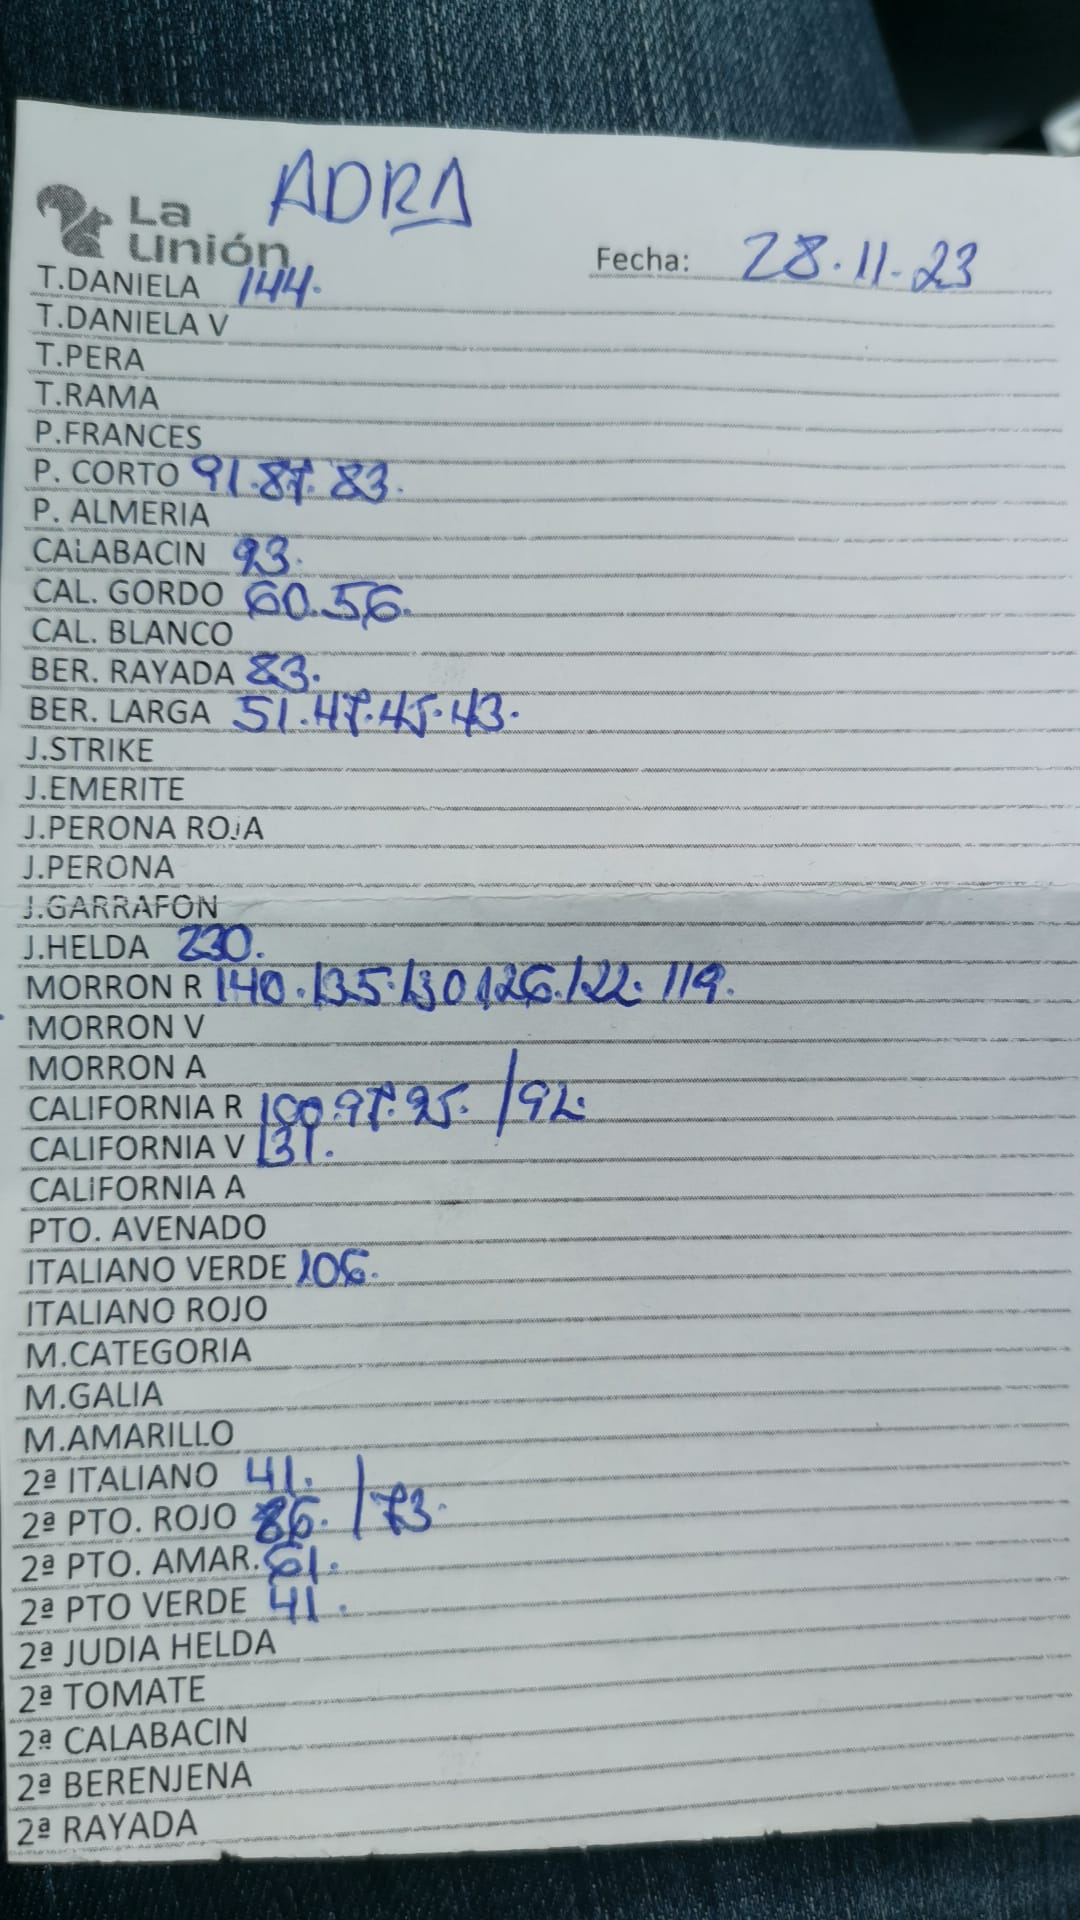 ADRA
La
Unión
Fecha: 28.11.23
T.DANIELA 144.
T.DANIELA V
T.PERA
T.RAMA
P.FRANCES
P. CORTO 91.87.83.
P. ALMERIA
CALABACIN 93.
CAL. GORDO 60.56.
CAL. BLANCO
BER. RAYADA 83.
BER. LARGA 51.47.45.43.
J.STRIKE
J.EMERITE
J.PERONA ROJA
J.PERONA
J.GARRAFON
J.HELDA 230.
MORRON R 140.135.130 126.122.119.
MORRON V
MORRON A
CALIFORNIA R 100.97.95. /92.
CALIFORNIA V 131.
CALIFORNIA A
PTO. AVENADO
ITALIANO VERDE 106.
ITALIANO ROJO
M.CATEGORIA
M.GALIA
M.AMARILLO
2ª ITALIANO 41.
2ª PTO. ROJO 86. /73.
2ª PTO. AMAR. 61.
2ª PTO VERDE 41.
2ª JUDIA HELDA
2ª TOMATE
2ª CALABACIN
2ª BERENJENA
2ª RAYADA